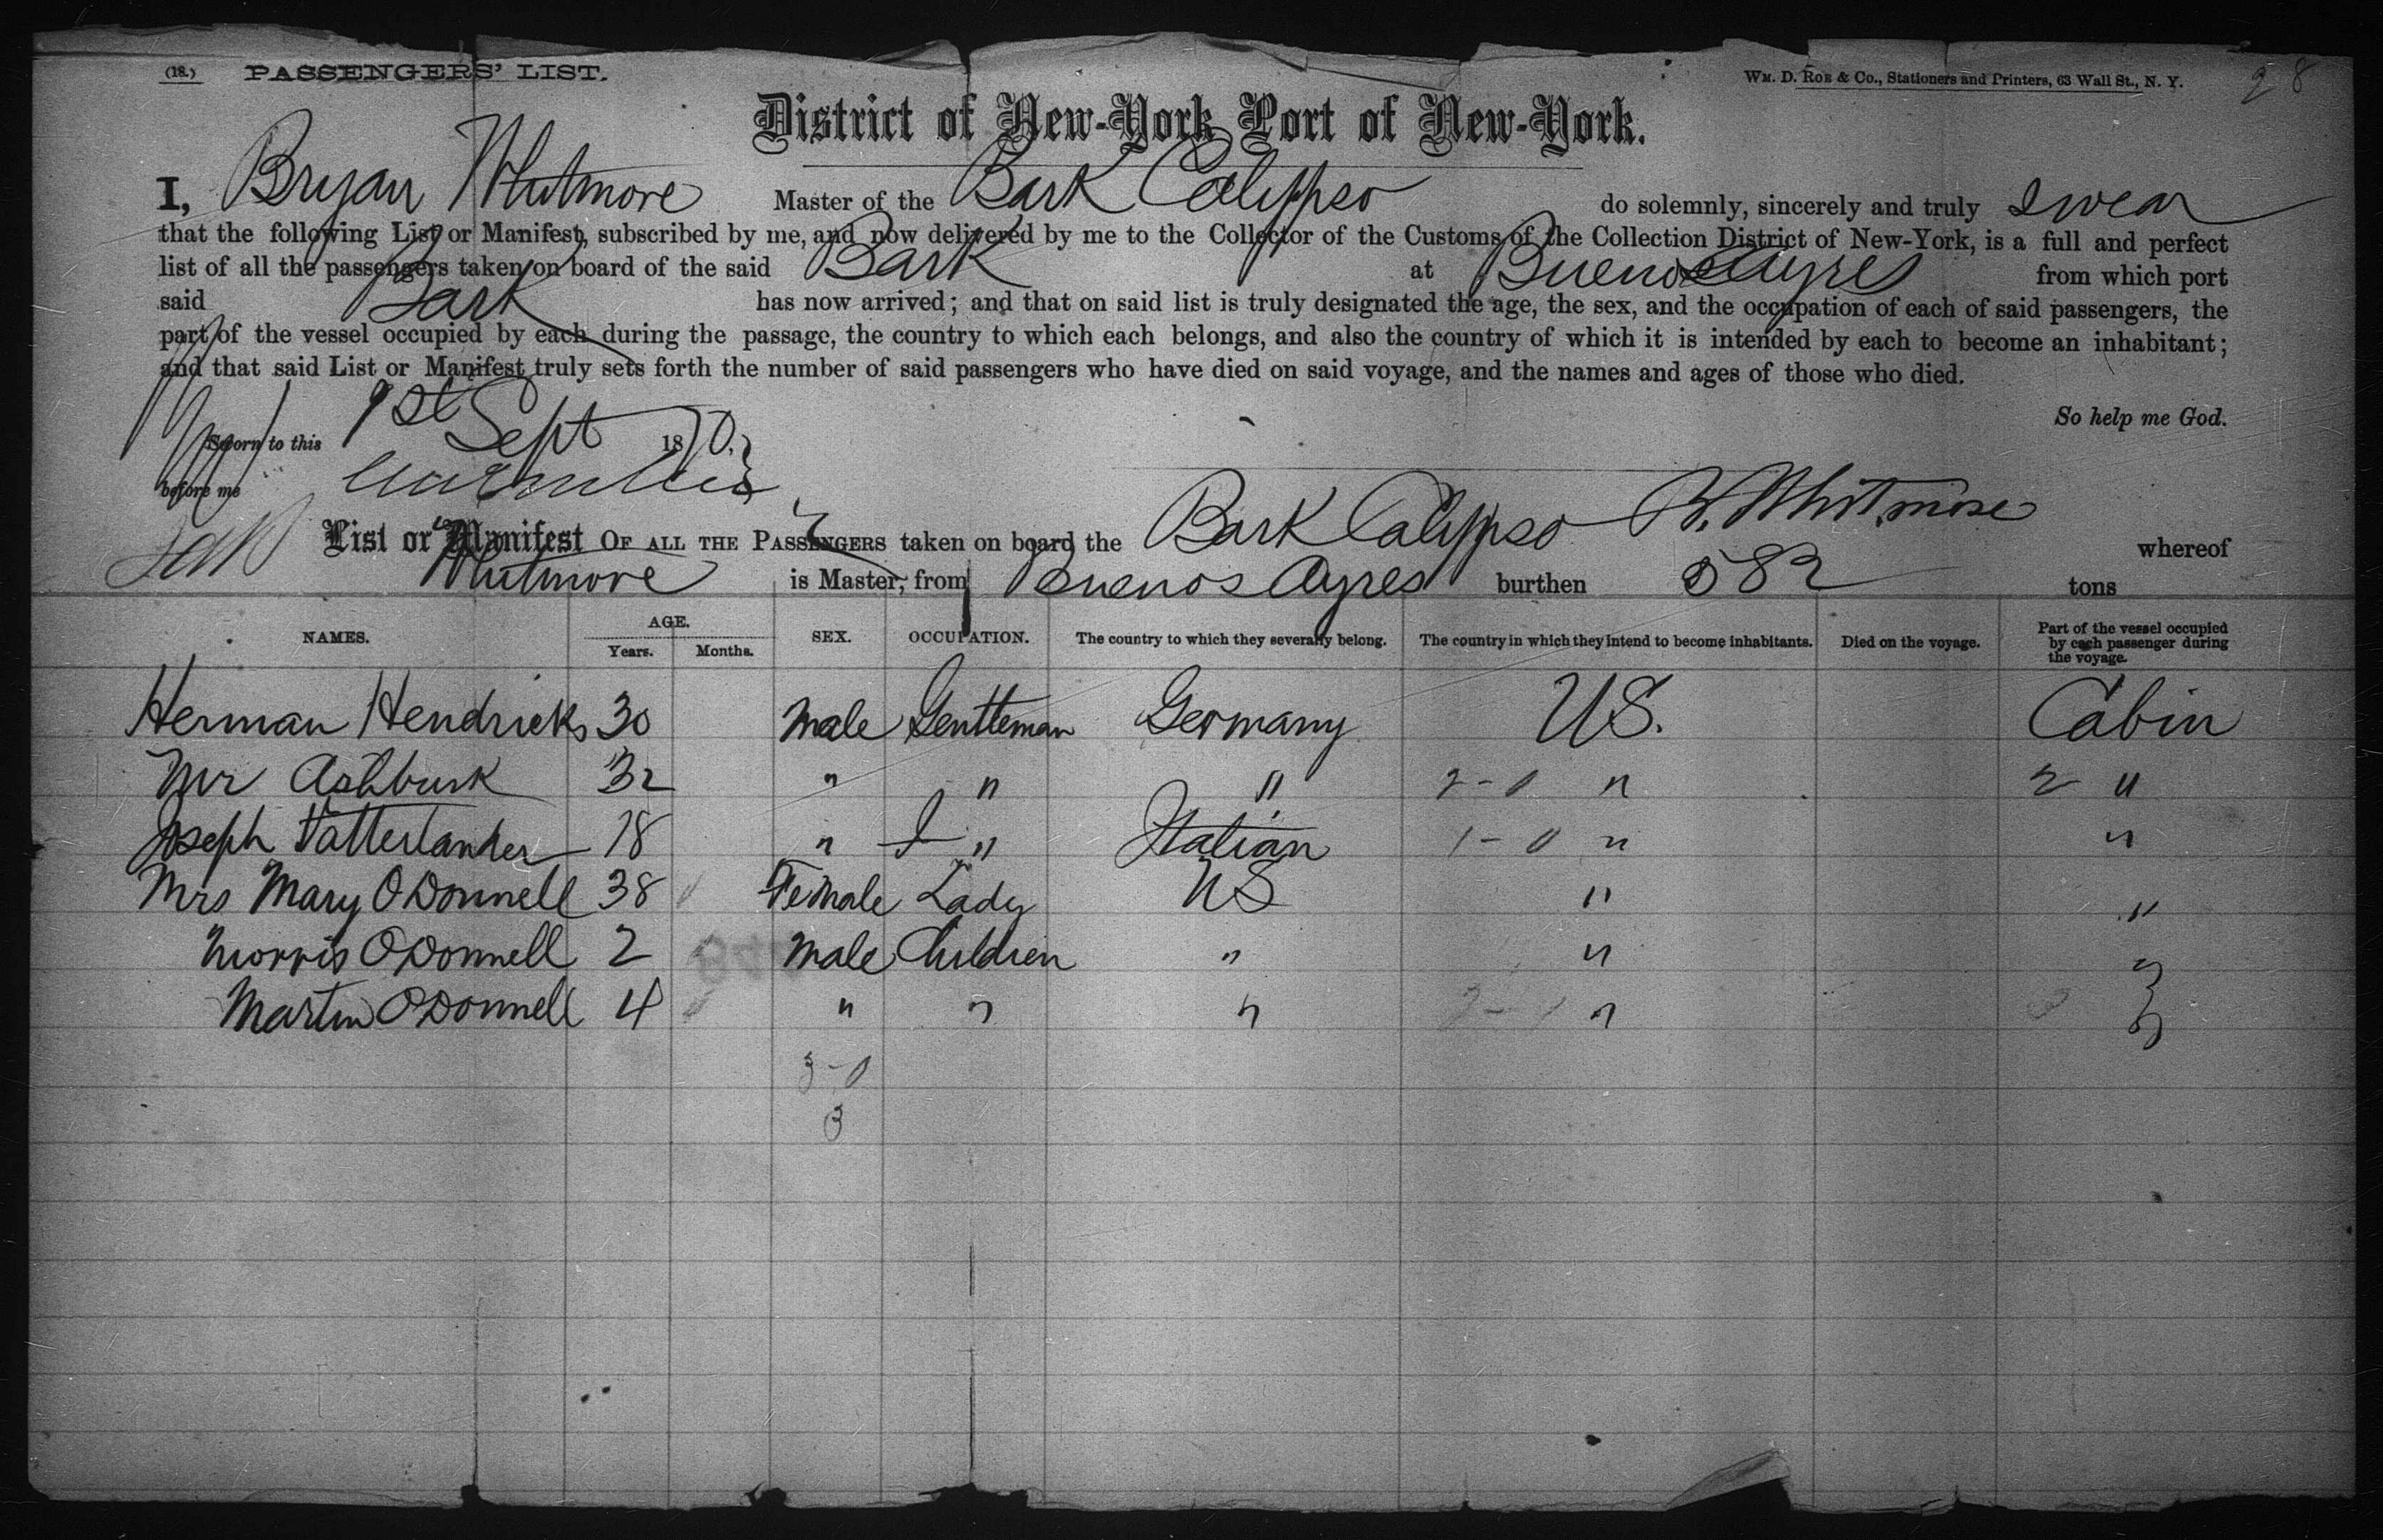 (18.) PASSENGERS' LIST. WM. D. ROE & Co., Stationers and Printers, 63 Wall St., N. Y.
District of New-York Port of New-York.
I, Bryan Whitmore Master of the Bark Calypso do solemnly, sincerely and truly swear
that the following List or Manifest, subscribed by me, and now delivered by me to the Collector of the Customs of the Collection District of New-York, is a full and perfect
list of all the passengers taken on board of the said Bark at Buenos Ayres from which port
said Bark has now arrived; and that on said list is truly designated the age, the sex, and the occupation of each of said passengers, the
part of the vessel occupied by each during the passage, the country to which each belongs, and also the country of which it is intended by each to become an inhabitant;
and that said List or Manifest truly sets forth the number of said passengers who have died on said voyage, and the names and ages of those who died.
So help me God.
Sworn to this 1st Sept 1870.
before me
List or Manifest OF ALL THE PASSENGERS taken on board the Bark Calypso B. Whitmore whereof
Whitmore is Master, from Buenos Ayres burthen 582 tons
NAMES. AGE. Years. Months. SEX. OCCUPATION. The country to which they severally belong. The country in which they intend to become inhabitants. Died on the voyage. Part of the vessel occupied by each passenger during the voyage.
Herman Hendricks 30 Male Gentleman Germany US. Cabin
Mr Ashbusk 32 " " " 2-0 " 2 "
Joseph Vatterlander 18 " " Italian 1-0 " "
Mrs Mary O'Donnell 38 Female Lady US " "
Morris O'Donnell 2 Male Children " " "
Martin O'Donnell 4 " " " " "
3-0
3